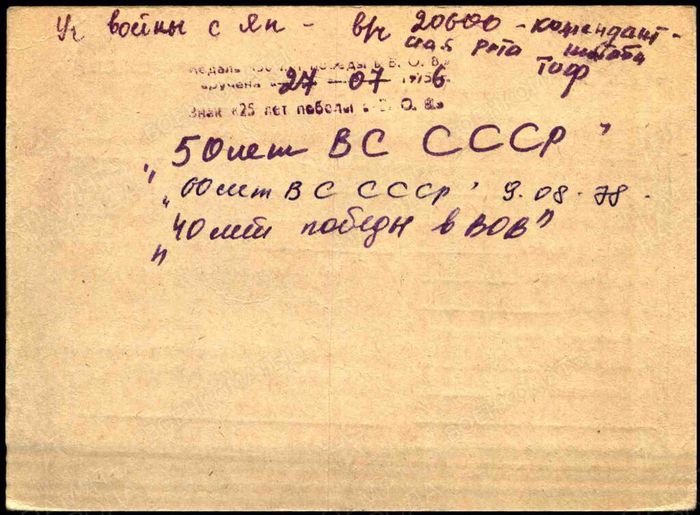 Уч войны с Яп - в/ч 20600 - комендант-
ская рота штаба
Медаль «30 лет победы в В. О. В.» ТОФ
вручена «27» 07 1975 6
Знак «25 лет победы в В. О. В.»
"50 лет ВС СССР"
"60 лет ВС СССР" 9.08.78.
"40 лет победы в ВОВ"